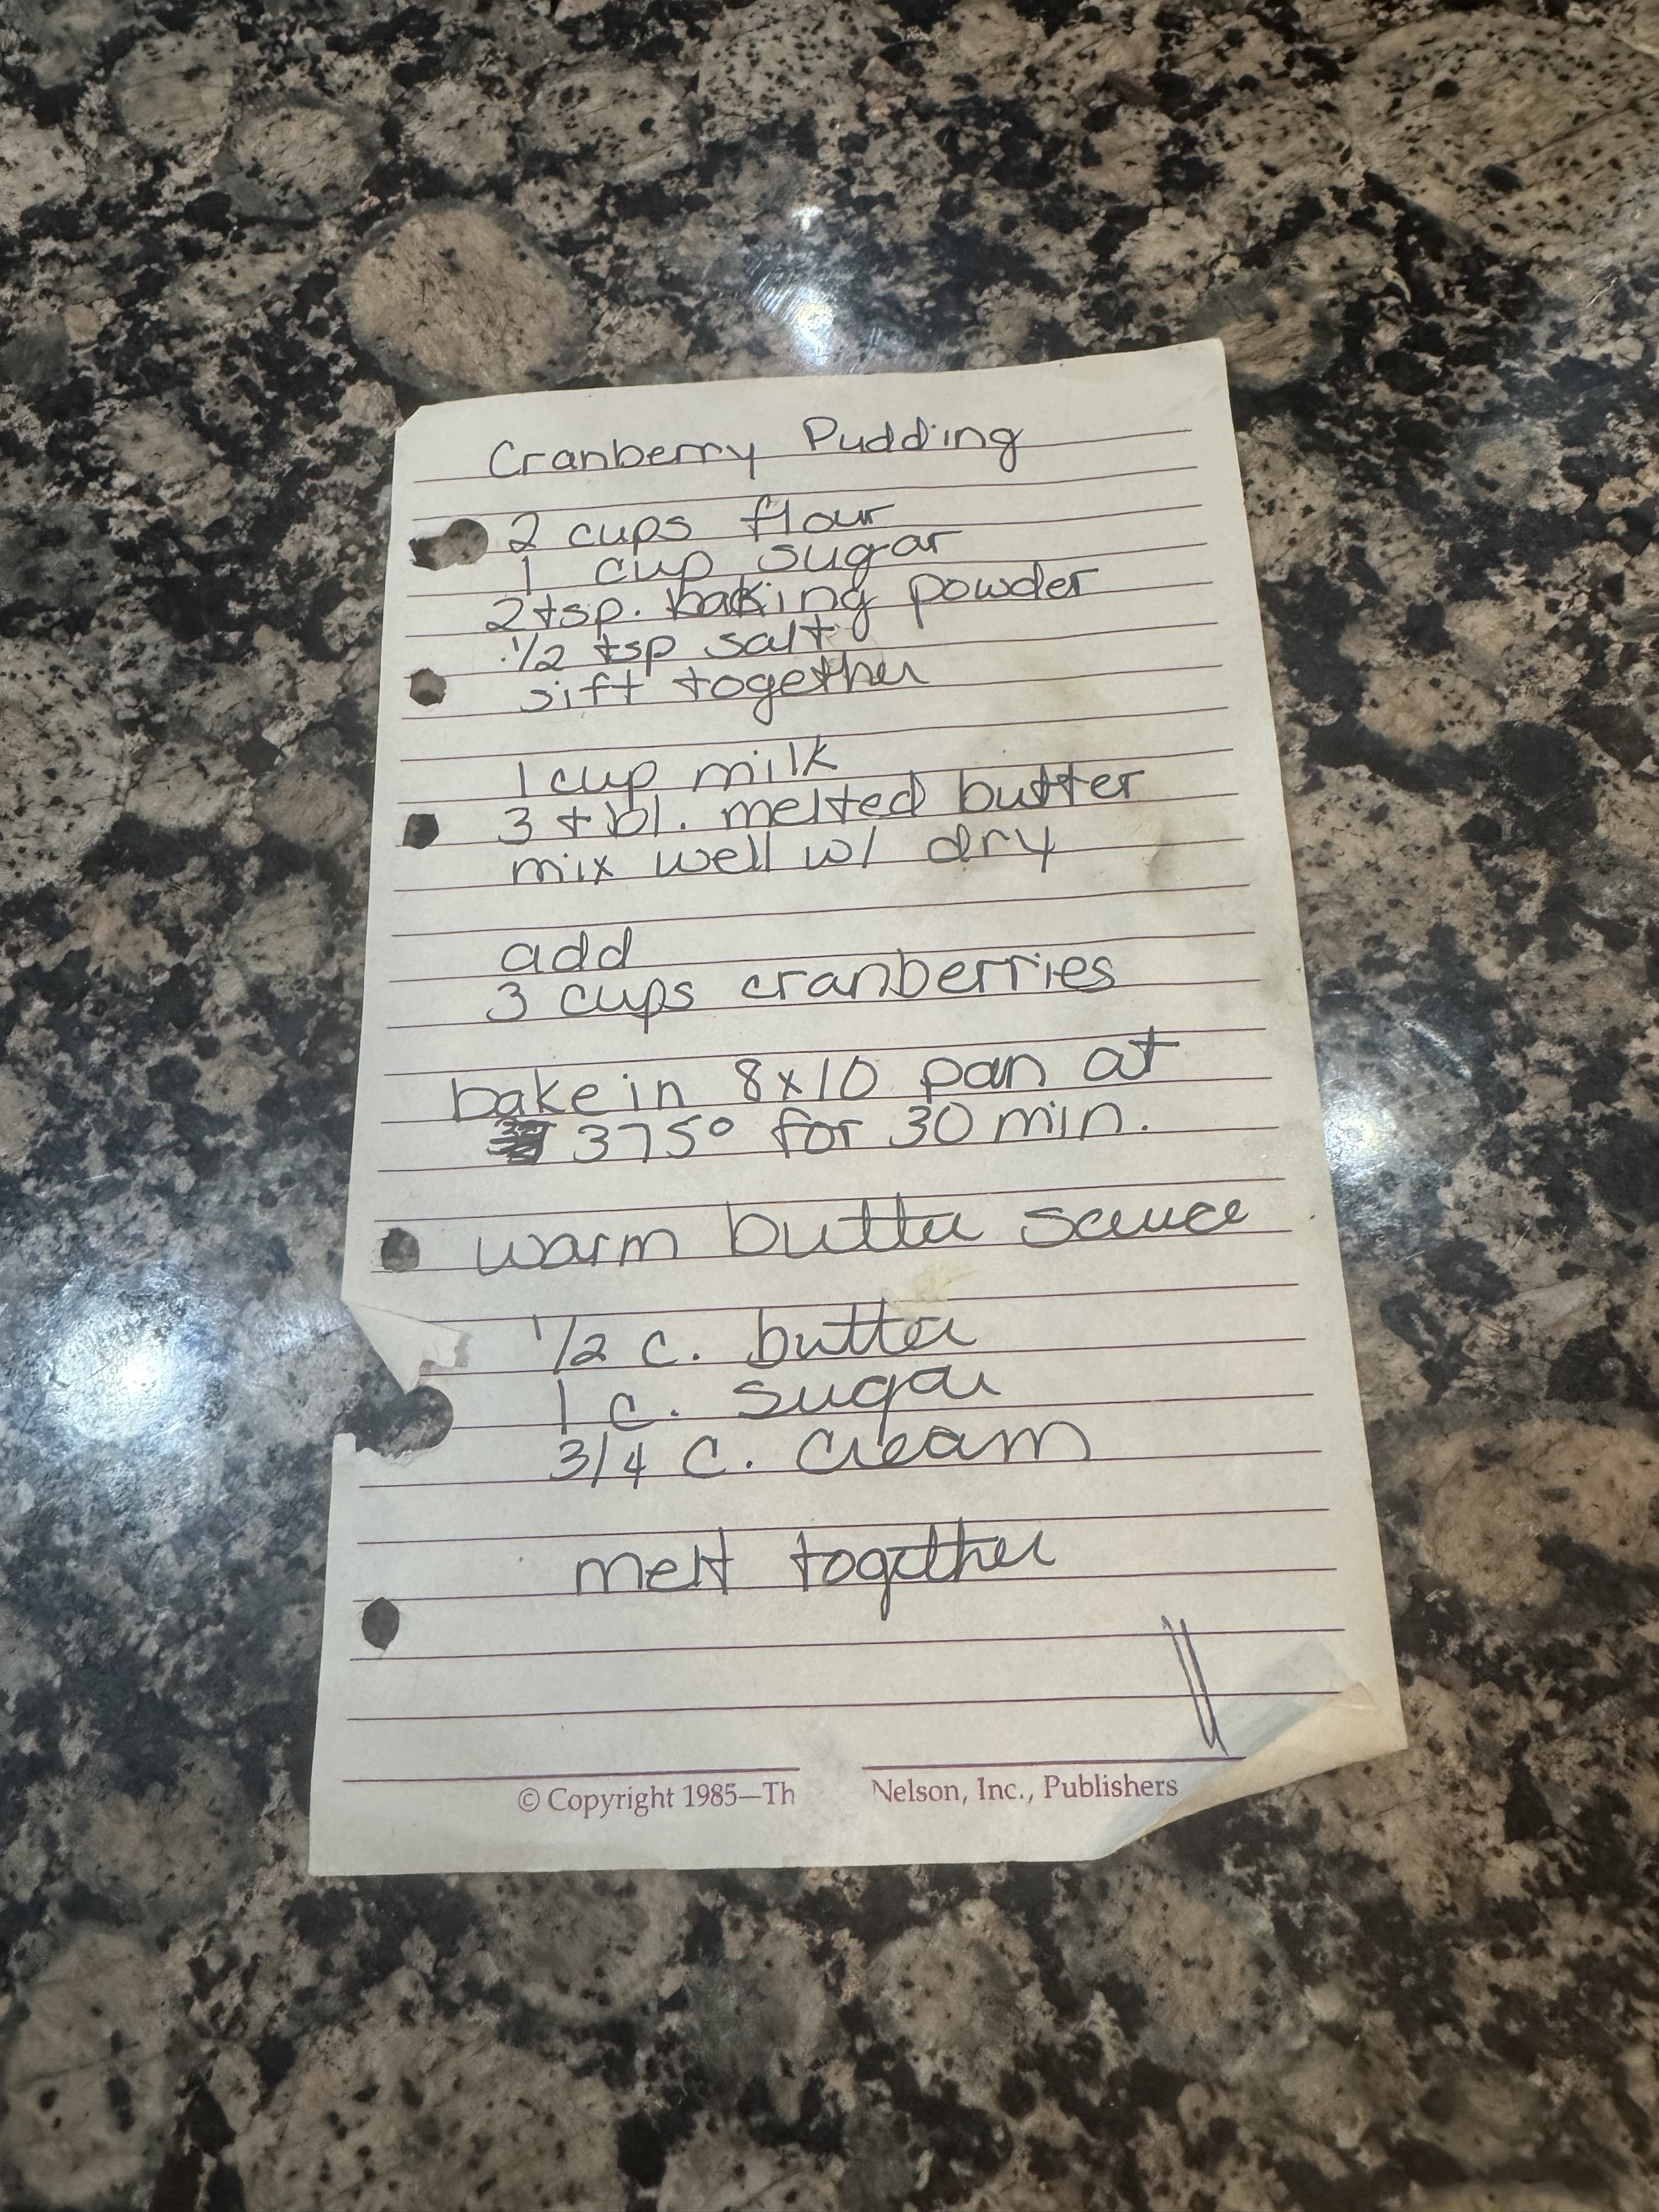 Cranberry Pudding
2 cups flour
1 cup sugar
2 tsp. baking powder
1/2 tsp salt
sift together
1 cup milk
3 tbl. melted butter
mix well w/ dry
add
3 cups cranberries
bake in 8x10 pan at
375° for 30 min.
warm butter sauce
1/2 c. butter
1 c. sugar
3/4 c. cream
melt together
© Copyright 1985—Th Nelson, Inc., Publishers